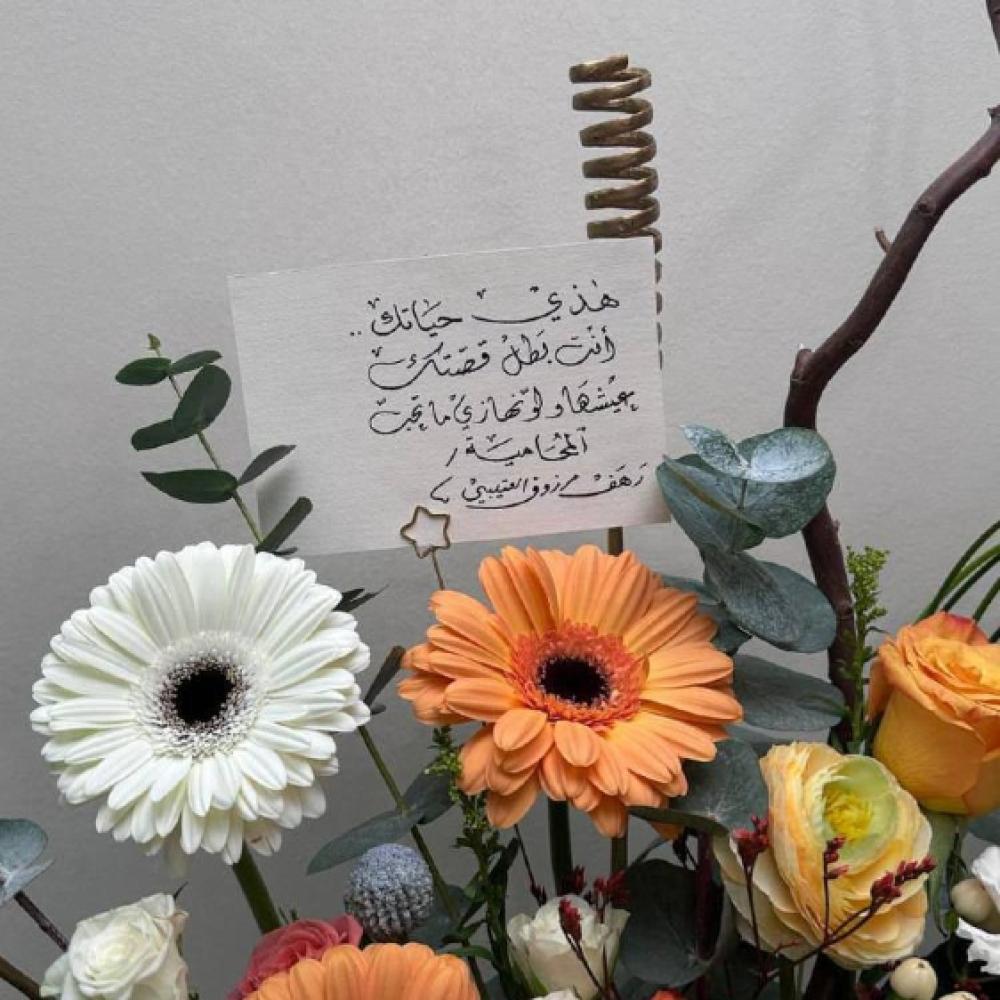 هٰذي حيَاتك ..
أنت بَطل قصّتك
عِيشهَا ولوّنها زي ما تحِب
المحَامية /
رَهَف مرزوق العتيبي